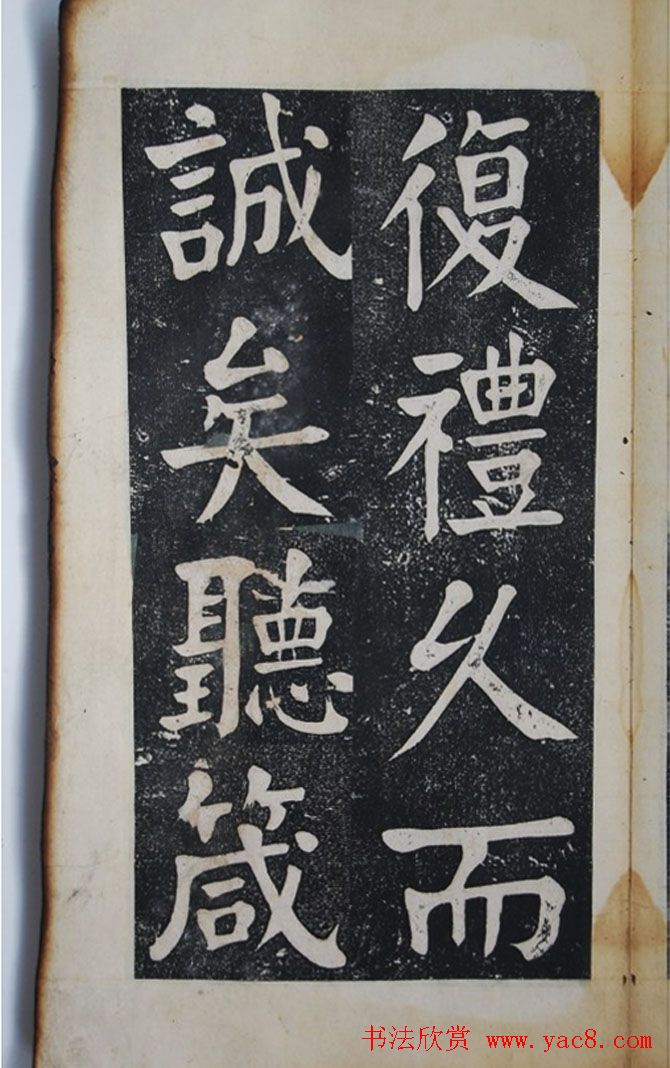 復禮久而
誠矣聽箴
书法欣赏 www.yac8.com